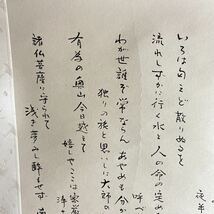 いろは匂えど散りぬるを
流れしずかに行く水と人の命の定め
呼べ
わが世誰ぞ常ならん あやめも分か
独りの旅と思いしに大師の
有為の奥山今日越えて
嬉しやここは
諸仏菩薩に守られて
浅き夢みし酔もせず